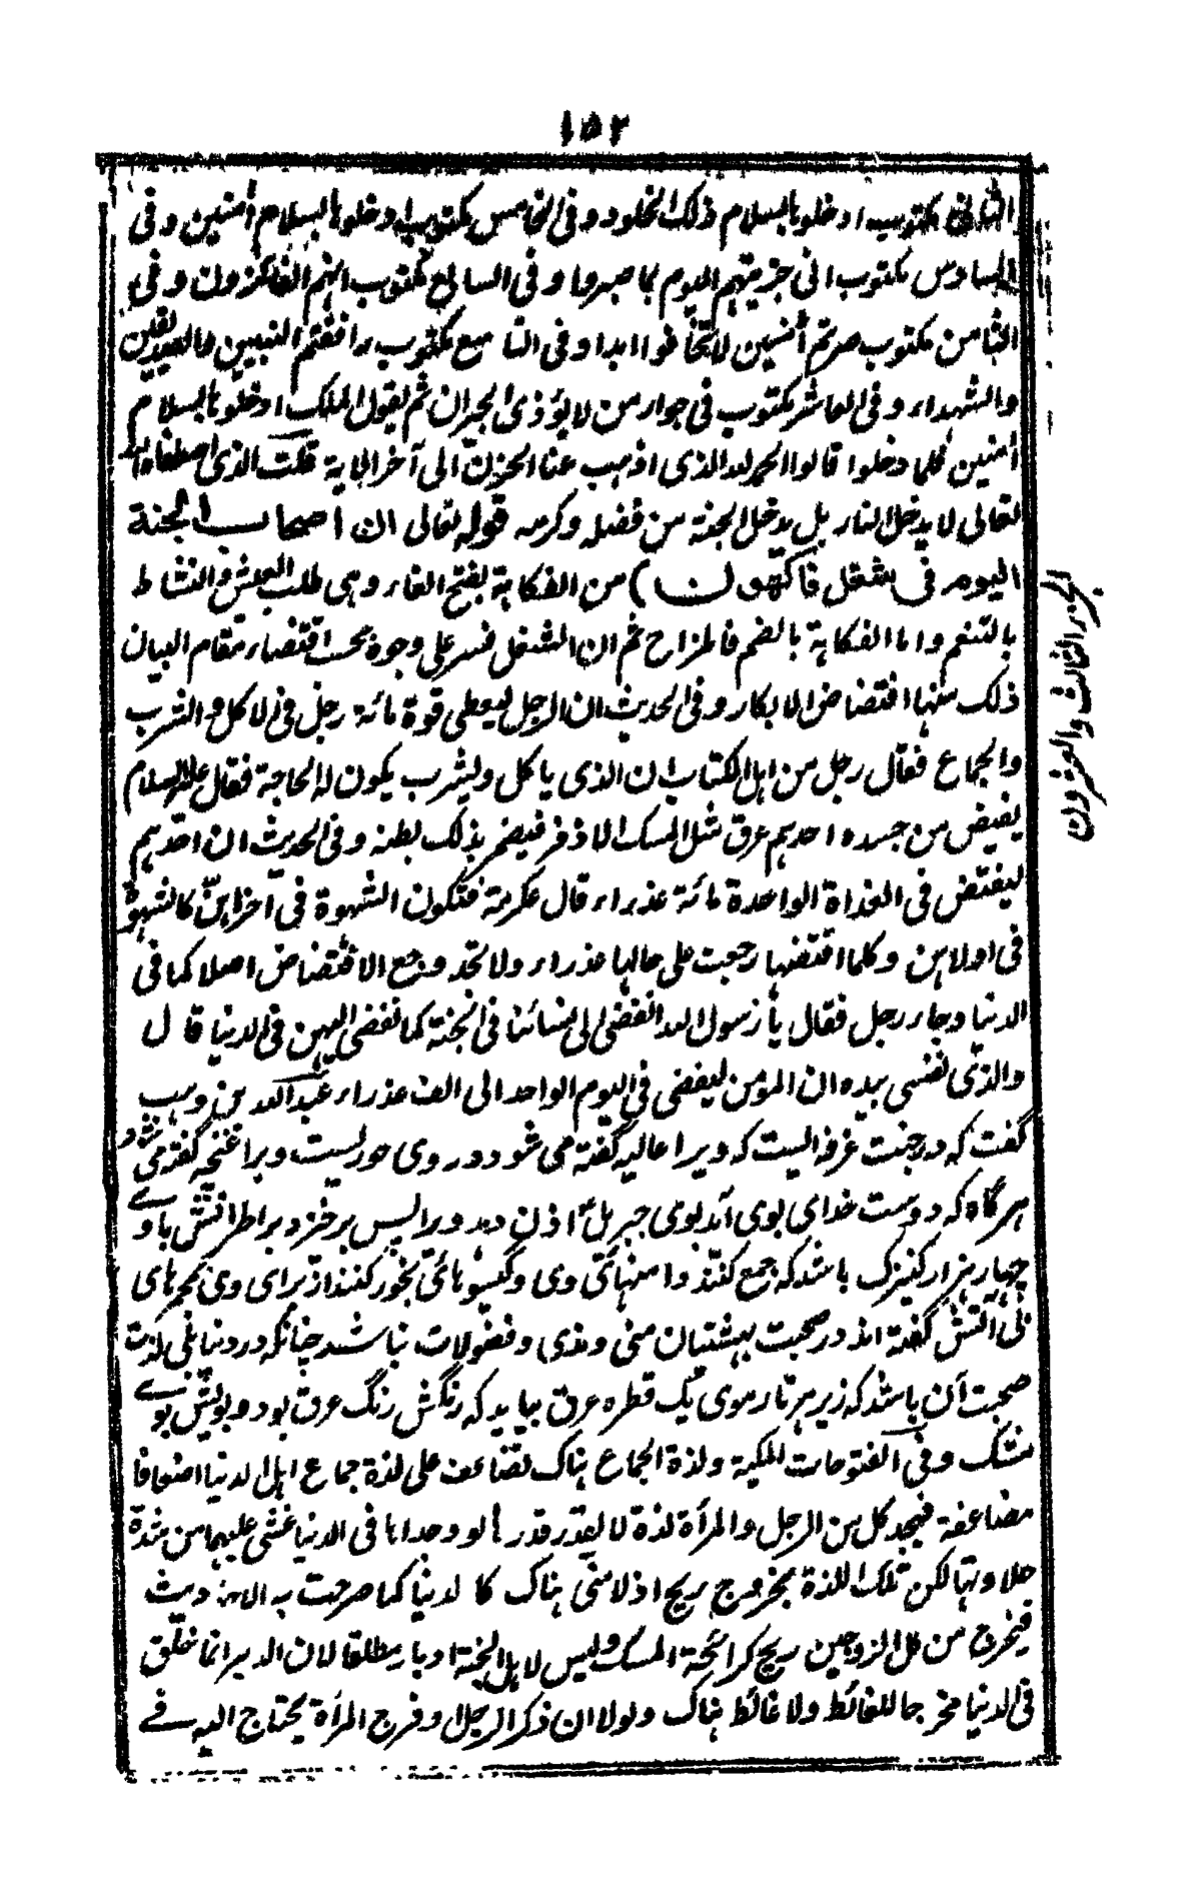 ١٥٢
الثانى مكتوب ادخلوها بسلام ذلك الخلود وفى الخامس مكتوب ادخلوها بسلام أمنين وفى
السادس مكتوب انى جزيتهم اليوم بما صبروا وفى السابع مكتوب انهم الفائزون وفى
الثامن مكتوب صرتم أمنين لا تخافوا ابدا وفى التاسع مكتوب رافقتم النبيين والصديقين
والشهداء وفى العاشر مكتوب فى جوار من لا يؤذى الجيران ثم يقول الملك ادخلوها بسلام
أمنين فلما دخلوا قالوا الحمد لله الذى اذهب عنا الحزن الى آخر الاية قلت الذى اصطفاه الله
تعالى لا يدخل النار بل يدخل الجنة من فضله وكرمه قوله تعالى ان اصحاب الجنة
اليوم فى شغل فاكهون) من الفكاهة بفتح الفاء وهى طلب العيش والنشاط
بالتنعم واما الفكاهة بالضم فالمزاح ثم ان الشغل فسر على وجوه بحسب اقتضاء مقام البيان
ذلك منها افتضاض الابكار وفى الحديث ان الرجل ليعطى قوة مائة رجل فى الاكل والشرب
والجماع فقال رجل من اهل الكتاب ان الذى ياكل ويشرب يكون له الحاجة فقال عليه السلام
يفيض من جسده احدهم عرق مثل المسك الاذفر فيضمر بذلك بطنه وفى الحديث ان احدهم
ليفتض فى الغداة الواحدة مائة عذراء قال عكرمة فتكون الشهوة فى آخراهنّ كالشهوة
فى اولاهن وكلما افتضها رجعت على حالها عذراء ولا تجد وجع الافتضاض اصلا كما فى
الدنيا وجاء رجل فقال يا رسول الله انفضى الى نسائنا فى الجنة كما نفضى اليهن فى الدنيا قال
والذى نفسى بيده ان المؤمن ليفضى فى اليوم الواحد الى الف عذراء عبد الله بن وهب
گفت كه در جنت غرفه ايست كه ويرا عاليه گفته مى شود در وى حوريست ويرا غنجه گفته مى شود
هرگاه كه دوست خداى بوى آند بوى جبريل اذن دهد ورا پس برخزد بر اطرافش باوے
چهار هزار كنيزك باشد كه جمع كنند دامنهائى وى وگيسوهائى بخور كنند از براى وى بمجرهاى
بى اتش گفته اند در صحبت بهشتيان منى ومذى وفضولات نباشد چنانكه در دنيا بلى لذت
صحبت آن باشد كه زير هر تار موى يك قطره عرق بيايد كه رنگش رنگ عرق بود وبويش بوے
مشك وفى الفتوحات المكية ولذة الجماع هناك تضاعف على لذة جماع اهل الدنيا اضعافا
مضاعفة فيجد كل من الرجل والمرأة لذة لا يقدر قدرها لو وجداها فى الدنيا غشى عليهما من شدة
حلاوتها لكن تلك اللذة بخروج ريح اذ لا منى هناك كا لدنيا كما صرحت به الاحاديث
فيخرج من كل الزوجين ريح كرائحة المسك وليس لاهل الجنة ادبار مطلقا لان الدبر انما خلق
فى الدنيا مخرجا للغائط ولا غائط هناك ولولا ان ذكر الرجل وفرج المرأة يحتاج اليه فے
الجزء الثالث والعشرون